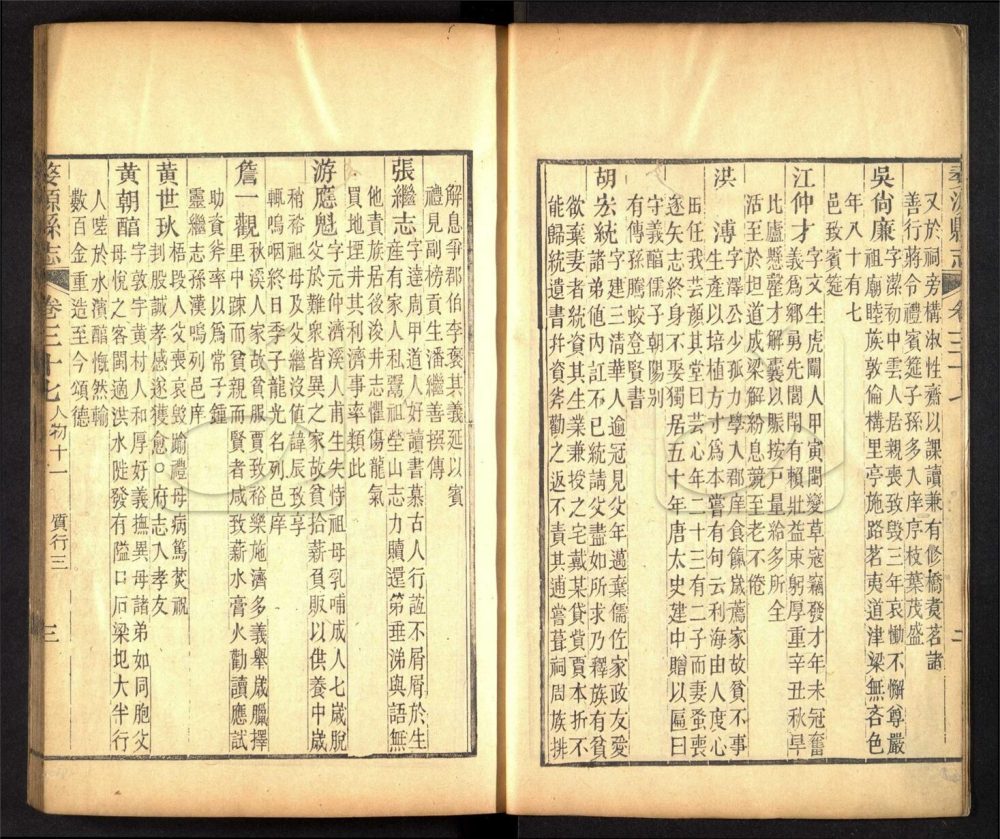 又於祠旁構淑性齋以課讀兼有修橋煑茗諸
善行蔣令禮賓筵子孫多入庠序枝葉茂盛
吳尙廉字潔初中雲人居親喪致毁三年哀慟不懈尊嚴
祖廟睦族敦倫構里亭施路茗夷道津梁無吝色
年八十有七
邑致賓筵
江仲才字文生虎闌人甲寅閩變草寇竊發才年未冠奮
義爲鄉勇先閭閈有賴壯益束躬厚重辛丑秋旱
比廬懸罄才解囊以賑按戸量給多所全
活至於坦道成梁解紛息競至老不倦
洪溥字澤公少孤力學入郡庠食餼歲薦家故貧不事
生產以培植方寸爲本嘗有句云利海由人度心
田任我芸顔其堂曰芸心年二十三有二子而妻蚤喪
遂矢志終身不娶獨居五十年唐太史建中贈以匾曰
守義醕儒子朝陽别
有傳孫騰蛟登賢書
胡宏統字建三清華人逾冠見父年邁棄儒佐家政友愛
諸弟佗内訌不已統請父盡如所求乃釋族有貧
欲棄妻者統資其生業兼授之宅戴某貸貲賈本折不
能歸統遺書幷資斧勸之返不責其逋嘗葺祠周族排
解息爭郡伯李褒其義延以賓
禮見副榜貢生潘繼善撰傳
張繼志字達周甲道人好讀書慕古人行誼不屑屑於生
產有家人私鬻祖塋山志力贖還弟垂涕與語無
他責族居後浚井志懼傷龍氣
買地堙井其利濟事率類此
游應魁字元仲濟溪人甫生失恃祖母乳哺成人七歲脫
父於難衆皆異之家故貧拾薪負販以供養中歲
稍裕祖母及父繼沒值諱辰致享
輒嗚咽終日季子龍光名列邑庠
詹一觀秋溪人家故貧服賈致裕樂施濟多義舉歲臘擇
里中疎而貧親而賢者咸致薪水膏火勸讀應試
助資斧率以爲常子鍾
靈繼志孫漢鳴列邑庠
黃世玞梧段人父喪哀毁踰禮母病篤焚祝
刲股誠孝感遂獲愈○府志入孝友
黃朝醕字敦宇黄村人和厚好義撫異母諸弟如同胞父
母悅之客閩適洪水陡發有隘口石梁圯大半行
人陸於水濱醕慨然輸
數百金重造至今頌德
婺源縣志
卷三十七
人物十一
質行三
三